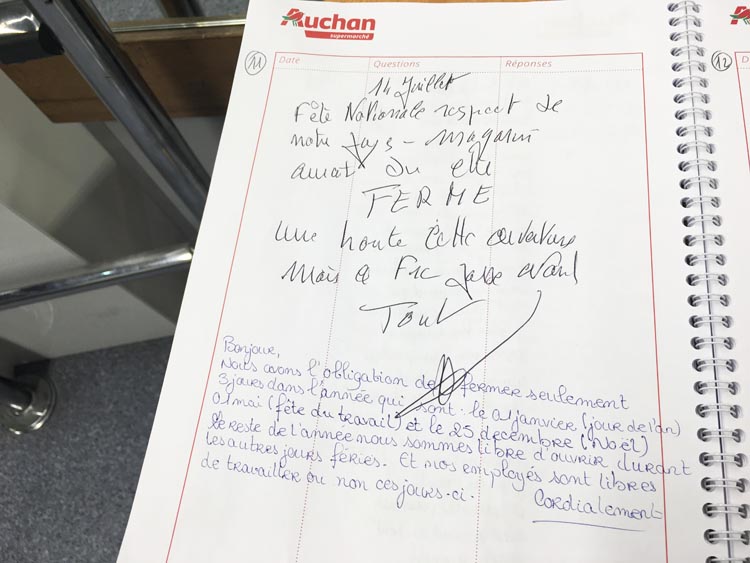 Auchan
supermarché
11 Date Questions Réponses
12 D
14 Juillet
Fête Nationale respect de
notre pays - magasin
aurait du etre
FERME
une honte cette ouverture
Mais le Fric passe avant
Tout
Bonjour,
Nous avons l'obligation de fermer seulement
3 jours dans l'année qui sont : le 01 janvier (jour de l'an)
01 mai (fête du travail) et le 25 décembre (Noël)
le reste de l'année nous sommes libre d'ouvrir durant
les autres jours fériés. Et nos employés sont libres
de travailler ou non ces jours-ci.
Cordialement